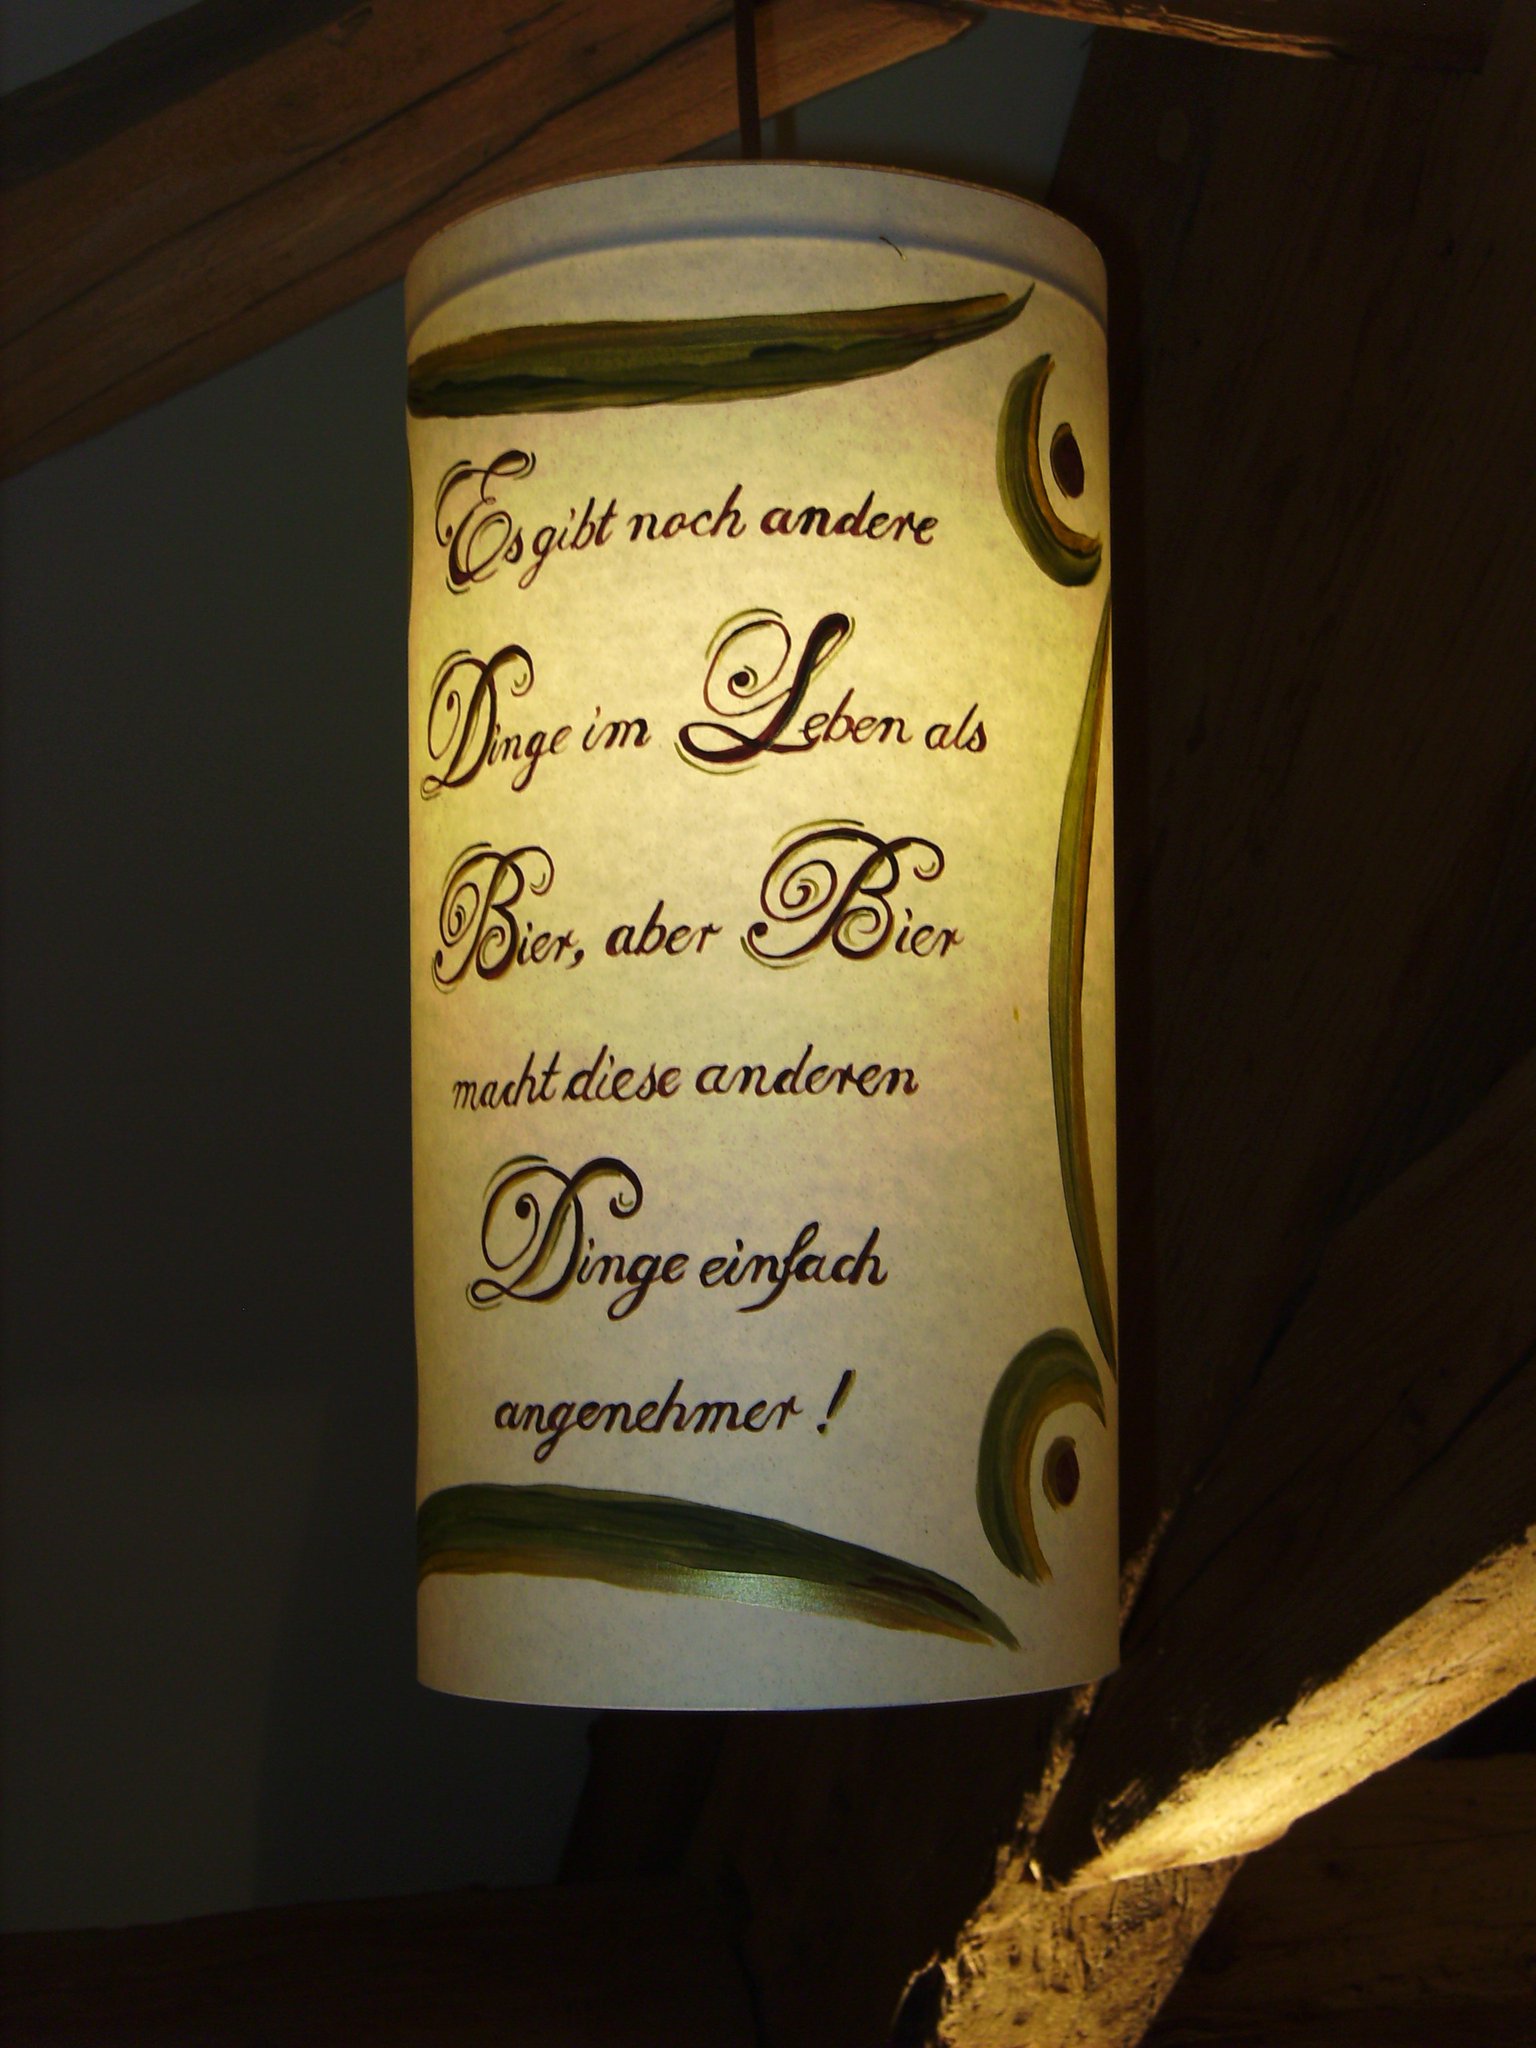 Es gibt noch andere
Dinge im Leben als
Bier, aber Bier
macht diese anderen
Dinge einfach
angenehmer !